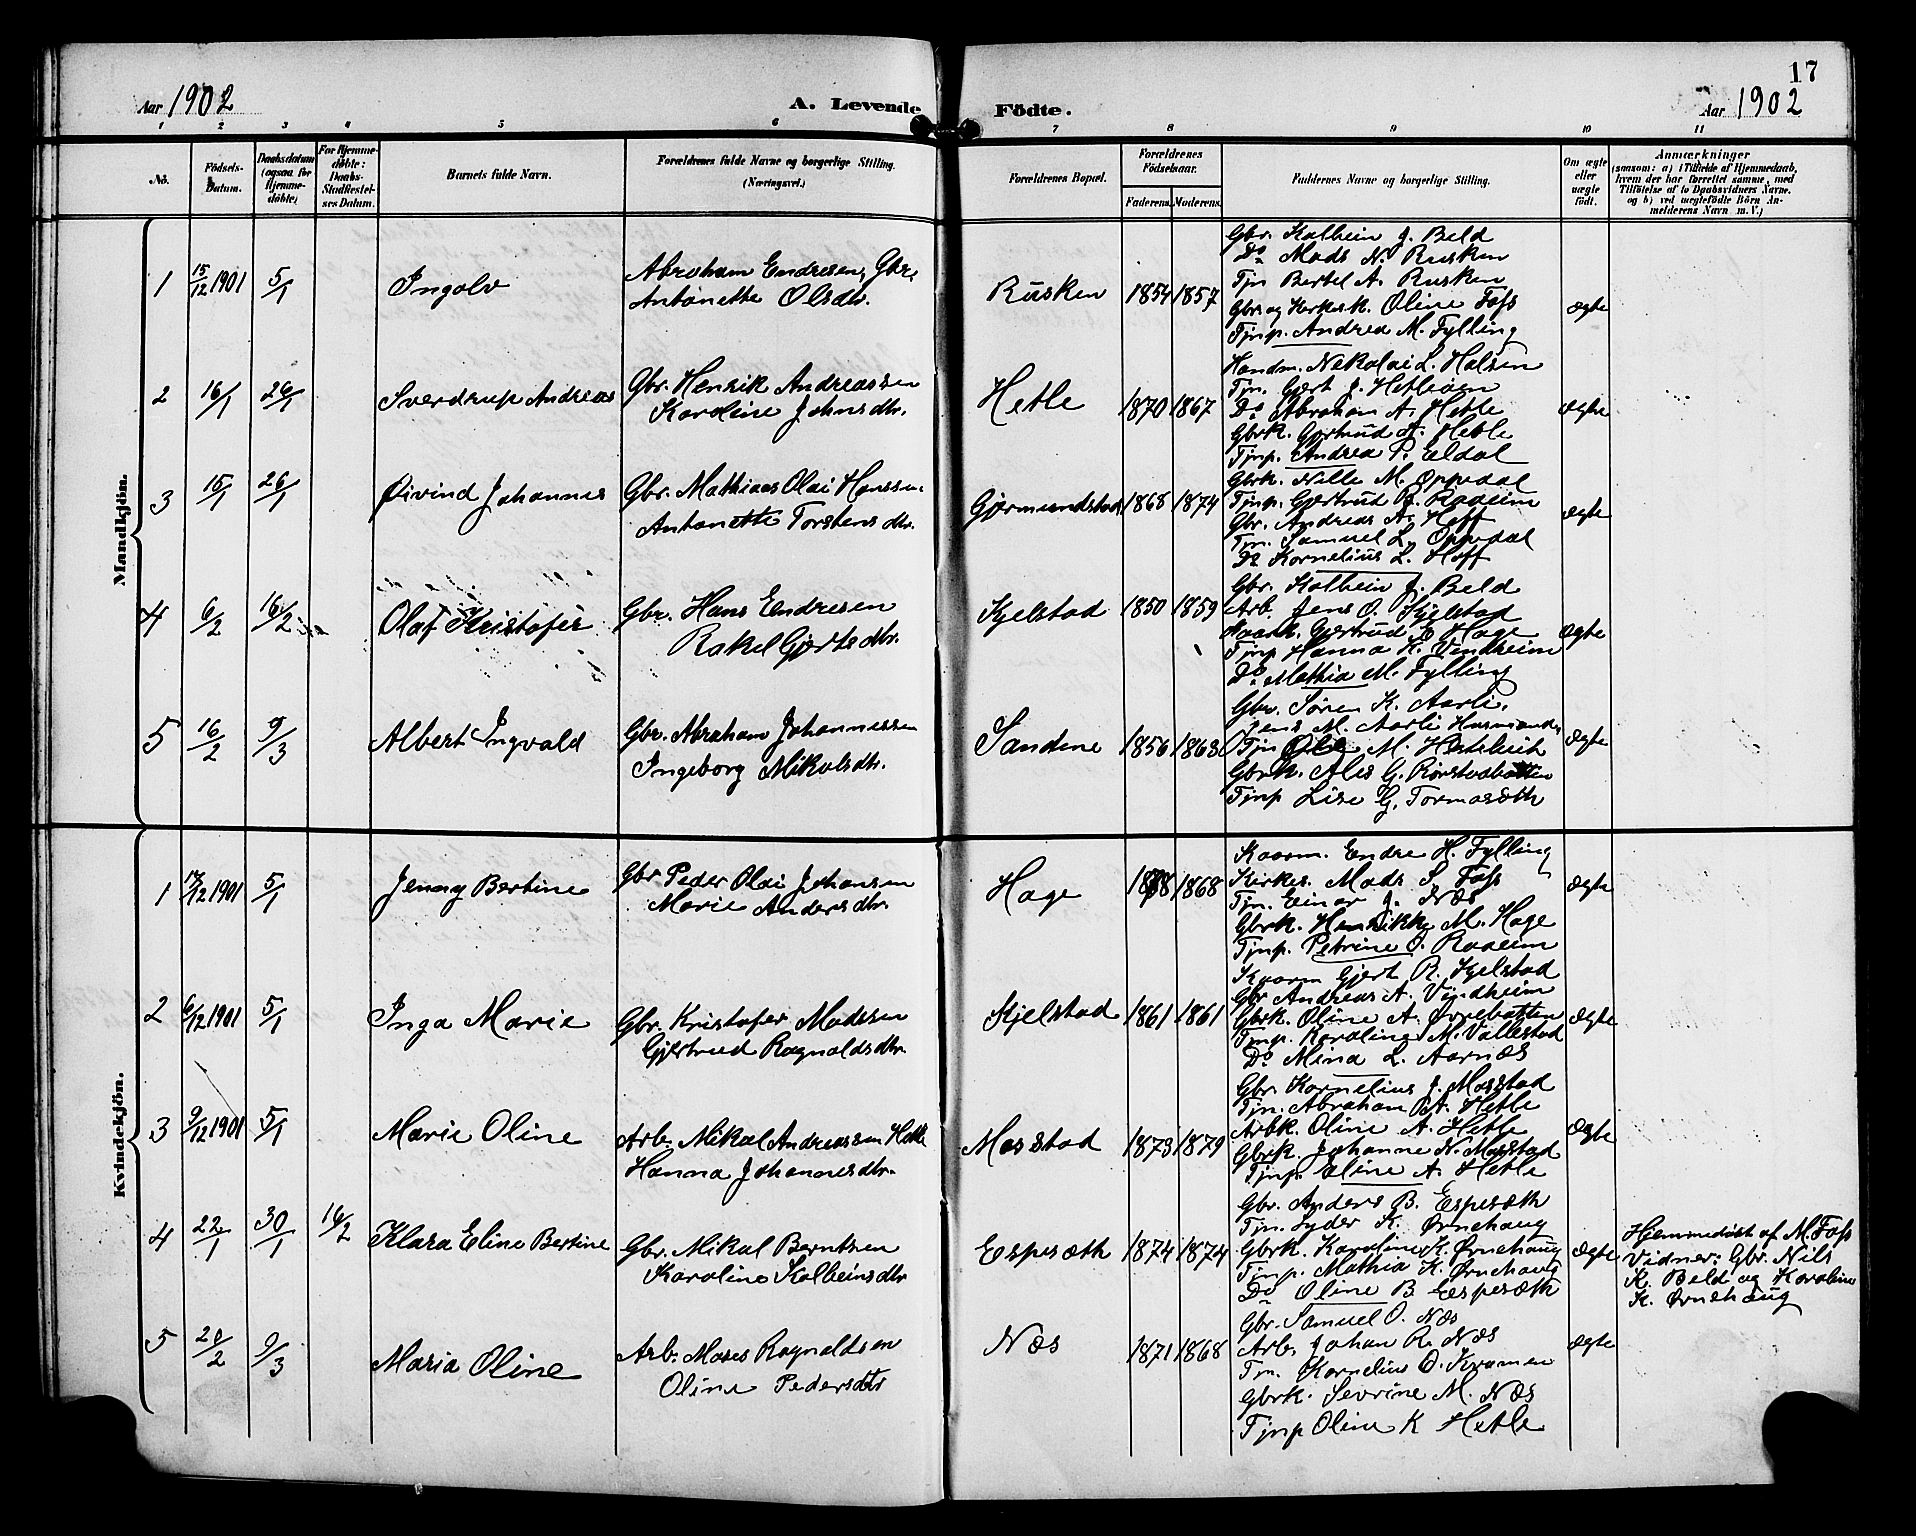 17
Aar 1902 A. Levende Födte. Aar 1902
1 2 3 4 5 6 7 8 9 10 11
No.
Födsels-
Datum.
Daabsdatum
(ogsaa for
Hjemme-
döbte)
For Hjemme-
döbte:
Daabs-
Stadfæstel-
ses Datum.
Barnets fulde Navn.
Forældrenes fulde Navne og borgerlige Stilling.
(Næringsvei.)
Forældrenes Bopæl.
Forældrenes
Födselsaar.
Faderens. Moderens.
Faddernes Navne og borgerlige Stilling.
Om ægte
eller
uægte
födt.
Anmærkninger
(saasom: a) i Tilfælde af Hjemmedaab,
hvem der har forrettet samme, med
Tilföielse af to Daabsvidners Navne.
og b) ved uægtefödte Börn An-
melderens Navn m. V.)
Mandkjön.
1 15/12 1901 5/1 Ingolv
Abraham Endresen, Gbr.
Antonette Olsdtr.
Rusken 1854 1857
Gbr. Kolbein J. Beld
Do Mads N. Rusken
Tjn Bertel A. Rusken
Gbr. og Kirkesk. Oline Foss
Tjnp. Andrea M. Fylling
Ægte
2 16/1 26/1 Sverdrup Andreas
Gbr. Henrik Andreassen
Karoline Johnsdtr.
Hetle 1870 1867
Handm. Nikolai L. Halsen
Tjn. Gjert J. Hetleøen
Do Abraham A. Hetle
Gbrk. Gjertrud A. Hetle
Tjnp. Andrea P. Eldal
Ægte
3 15/1 26/1 Øivind Johannes
Gbr. Mathias Olai Hanssen.
Antonette Torstensdtr.
Gjermundstad 1868 1874
Gbrk. Nille M. Oppedal
Tjnp. Gjertrud J. Raaeim
Gbr. Andreas A. Hoff
Tjn. Samuel L. Oppedal
Do Kornelius L. Hoff
Ægte
4 6/2 16/2 Olaf Kristofer
Gbr. Hans Endresen
Rakel Gjertsdtr.
Kjelstad 1850 1859
Gbr. Kolbein J. Beld
Arb. Jens O. Kjelstad
Kaark. Gjertrud Hage
Tjnp Hanna H. Vindheim
Do Mathia M. Fylling
Ægte
5 16/2 9/3 Albert Ingvald
Gbr. Abraham Johannessen
Ingeborg Mikalsdtr.
Sandene 1856 1863
Gbr. Søren K. Aarli.
Jens M. Aarli Husmand
Tjn Ole M. Hestebeit
Gbrk. Ales G. Rørstadbotten
Tjnp Lise G. Tormaseth
Ægte
Kvindekjön.
1 12 1901 5/1 Jenny Bertine
Gbr Peder Olai Johansen
Marie Andersdtr.
Hage 1868
Kaarm. Endre H. Fylling
Kirkes. Mads S. Foss
Tjn. Einar J. Næs
Gbrk. Henrikke M. Hage
Tjnp. Petrine O. Raaeim
Ægte
2 6/12 1901 5/1 Inga Marie
Gbr. Kristofer Madssen
Gjertrud Ragnaldsdtr.
Kjelstad 1861 1861
Kaarm Gjert R. Kjelstad
Gbr Andreas A. Vindheim
Gbrk. Oline A. Øvrebotten
Tjnp. Karoline M. Vallestad
Do Mina L. Aarnæs
Ægte
3 9/12 1901 5/1 Marie Oline
Arb. Mikal Andreassen Hetle
Hanna Johannesdtr.
Masstad 1873 1879
Gbr. Kornelius J. Masstad
Tjn. Abraham A. Hetle
Arbk. Oline A. Hetle
Gbrk. Johanne N. Masstad
Tjnp. Eline A. Hetle
Ægte
4 22/1 30/1 16/2 Klara Eline Bertine
Gbr. Mikal Berntsen
Karoline Kolbeinsdtr
Espesæth 1874 1874
Gbr. Anders B. Espesæth
Tjn. Lyder K. Ørnehaug
Gbrk. Karoline K. Ørnehaug
Tjnp. Mathia K. Ørnehaug
Do Oline B. Espesæth
Ægte
Hjemmedøbt af M. Foss
Vidner: Gbr. Nils
K. Beld og Karoline
K. Ørnehaug
5 20/2 9/3 Maria Oline
Arb. Moses Ragnaldsen
Oline Pedersdtr
Næs 1871 1868
Gbr. Samuel O. Næs
Arb. Johan R. Næs
Tjn. Kornelius O. Kramen
Gbrk. Sevrine M. Næs
Tjnp Oline K Hetle
Ægte